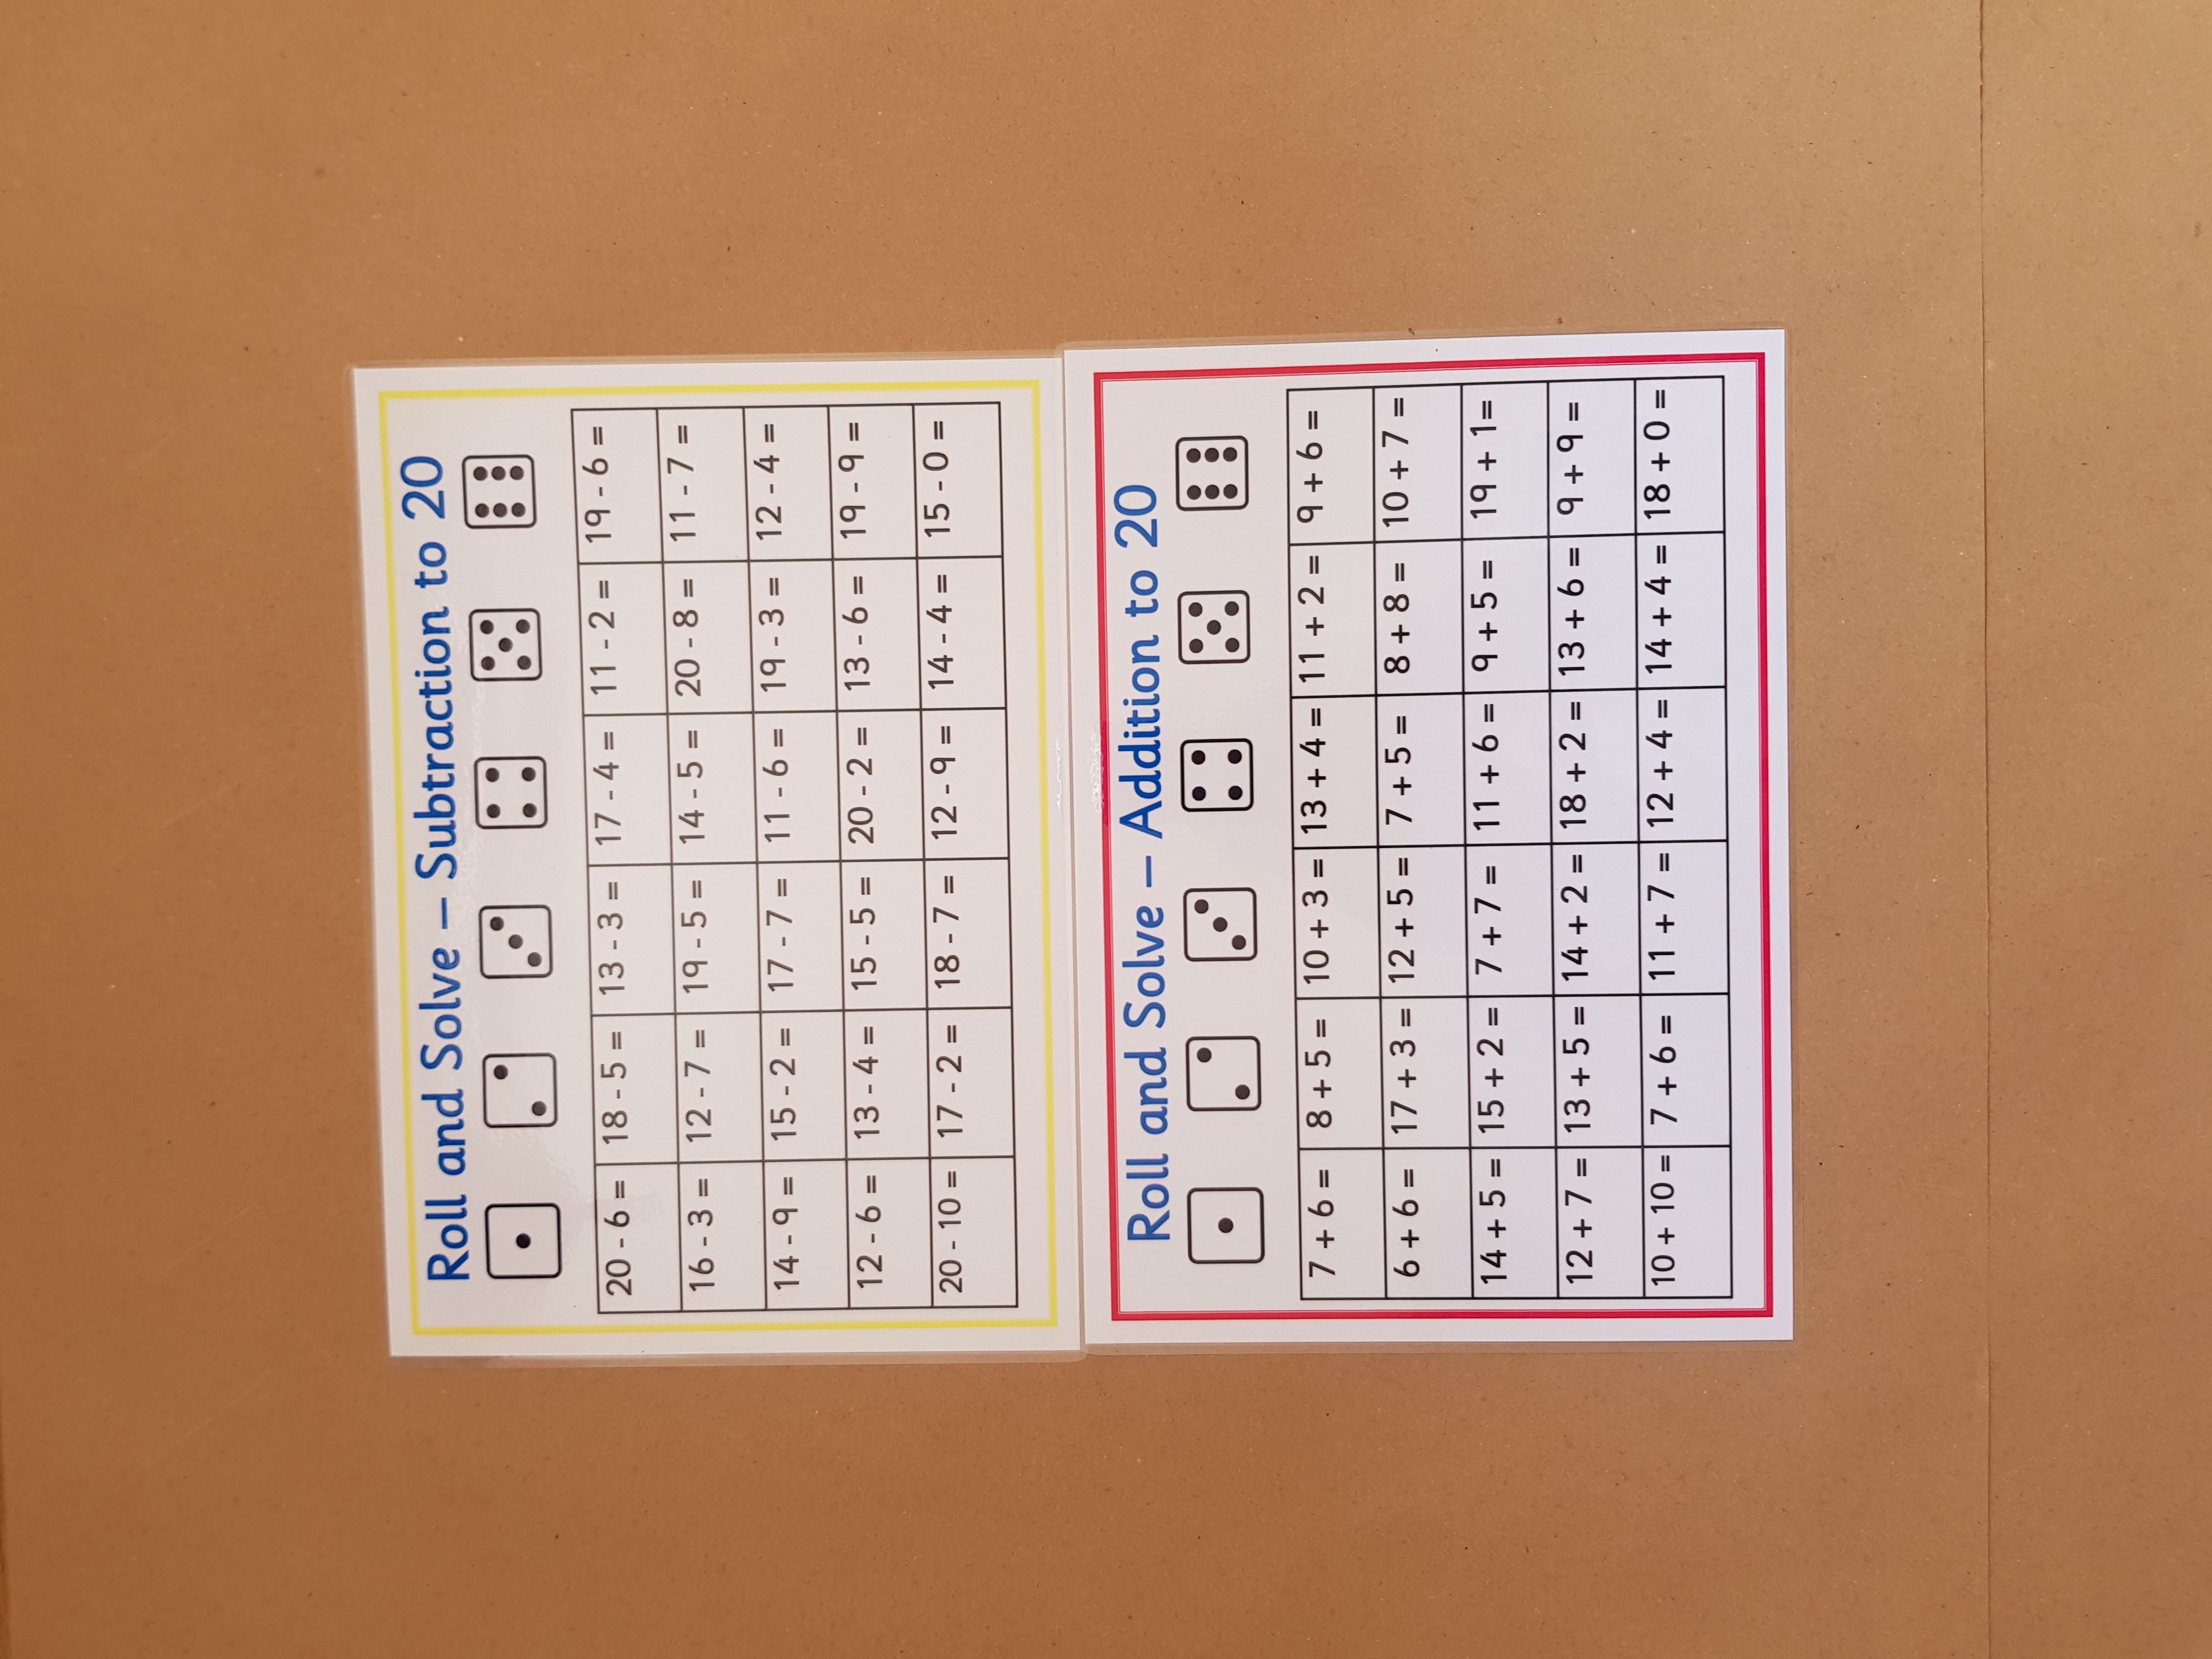 Roll and Solve – Subtraction to 20
20 - 6 = 18 - 5 = 13 - 3 = 17 - 4 = 11 - 2 = 19 - 6 =
16 - 3 = 12 - 7 = 19 - 5 = 14 - 5 = 20 - 8 = 11 - 7 =
14 - 9 = 15 - 2 = 17 - 7 = 11 - 6 = 19 - 3 = 12 - 4 =
12 - 6 = 13 - 4 = 15 - 5 = 20 - 2 = 13 - 6 = 19 - 9 =
20 - 10 = 17 - 2 = 18 - 7 = 12 - 9 = 14 - 4 = 15 - 0 =
Roll and Solve – Addition to 20
7 + 6 = 8 + 5 = 10 + 3 = 13 + 4 = 11 + 2 = 9 + 6 =
6 + 6 = 17 + 3 = 12 + 5 = 7 + 5 = 8 + 8 = 10 + 7 =
14 + 5 = 15 + 2 = 7 + 7 = 11 + 6 = 9 + 5 = 19 + 1 =
12 + 7 = 13 + 5 = 14 + 2 = 18 + 2 = 13 + 6 = 9 + 9 =
10 + 10 = 7 + 6 = 11 + 7 = 12 + 4 = 14 + 4 = 18 + 0 =